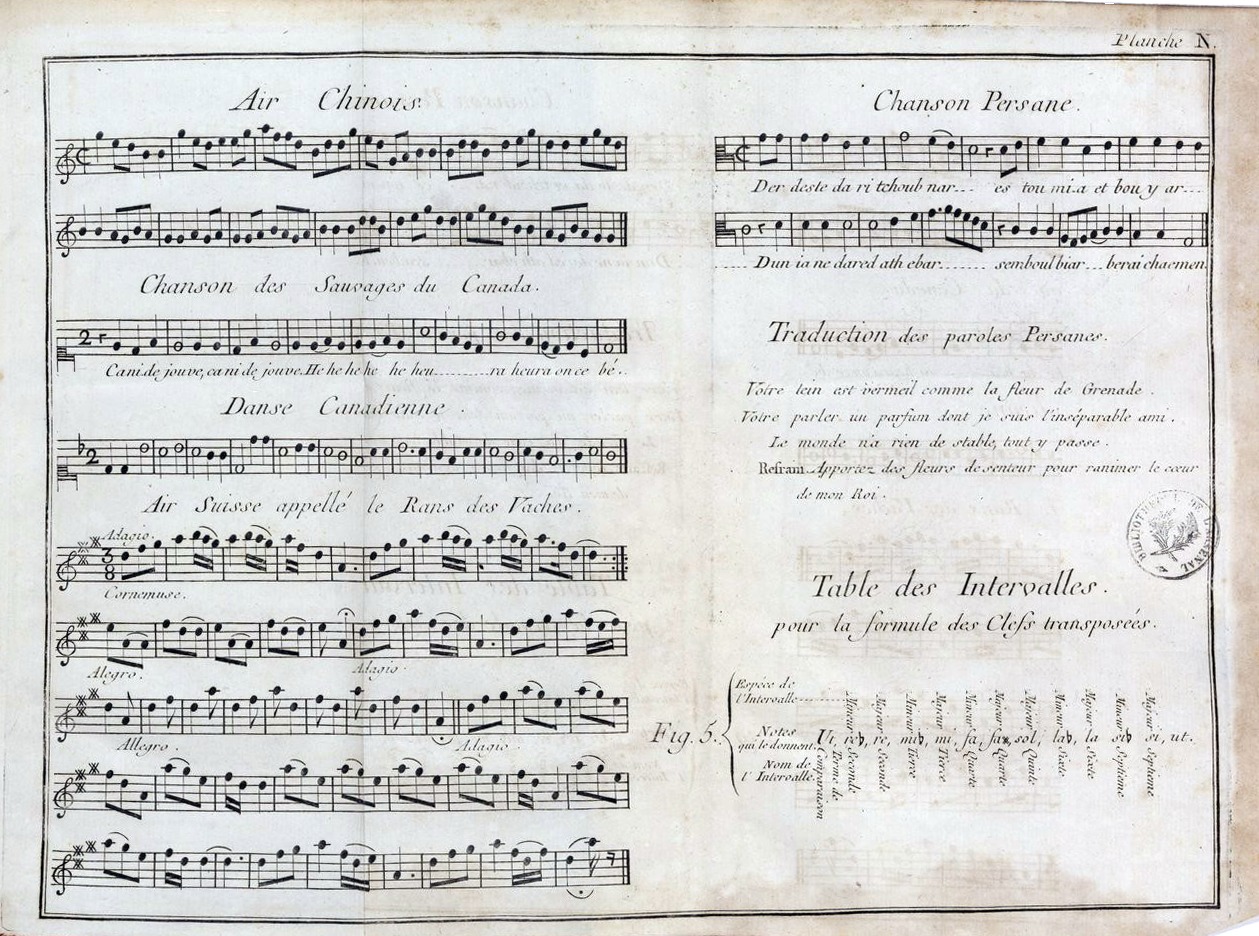 Planche N.
Air Chinois
Chanson des Sauvages du Canada.
Cani de jouve, ca ni de jouve. He he he he he heu.......... ra heura on ce bé..
Danse Canadienne.
Air Suisse appellé le Rans des Vaches.
Adagio.
Cornemuse.
Alegro.
Adagio.
Allegro.
Adagio.
Chanson Persane.
Der deste da ri tchoub nar.... es tou mi.a et bou y ar....
Dun ia ne dared ath ebar....... semboul biar... berai chaemen.
Traduction des paroles Persanes.
Votre tein est vermeil comme la fleur de Grenade.
Votre parler un parfum dont je suis l'inséparable ami.
Le monde n'a rien de stable, tout y passe.
Refrain. Apportez des fleurs de senteur pour ranimer le cœur
de mon Roi.
BIBLIOTHEQUE DE L'ARSENAL
Table des Intervalles.
pour la formule des Clefs transposées.
Fig. 5.
Espéce de
l'Intervalle
Mineur Majeur Mineur Majeur Mineur Majeur Majeur Mineur Majeur Mineur Majeur
Notes
qui le donnent.
Ut, re♭, re, mi♭, mi, fa, fa𝄪, sol, la♭, la, si♭, si, ut.
Nom de
l'Intervalle.
Terme de Comparaison Seconde Seconde Tierce Tierce Quarte Quarte Quinte Sixte Sixte Septieme Septieme